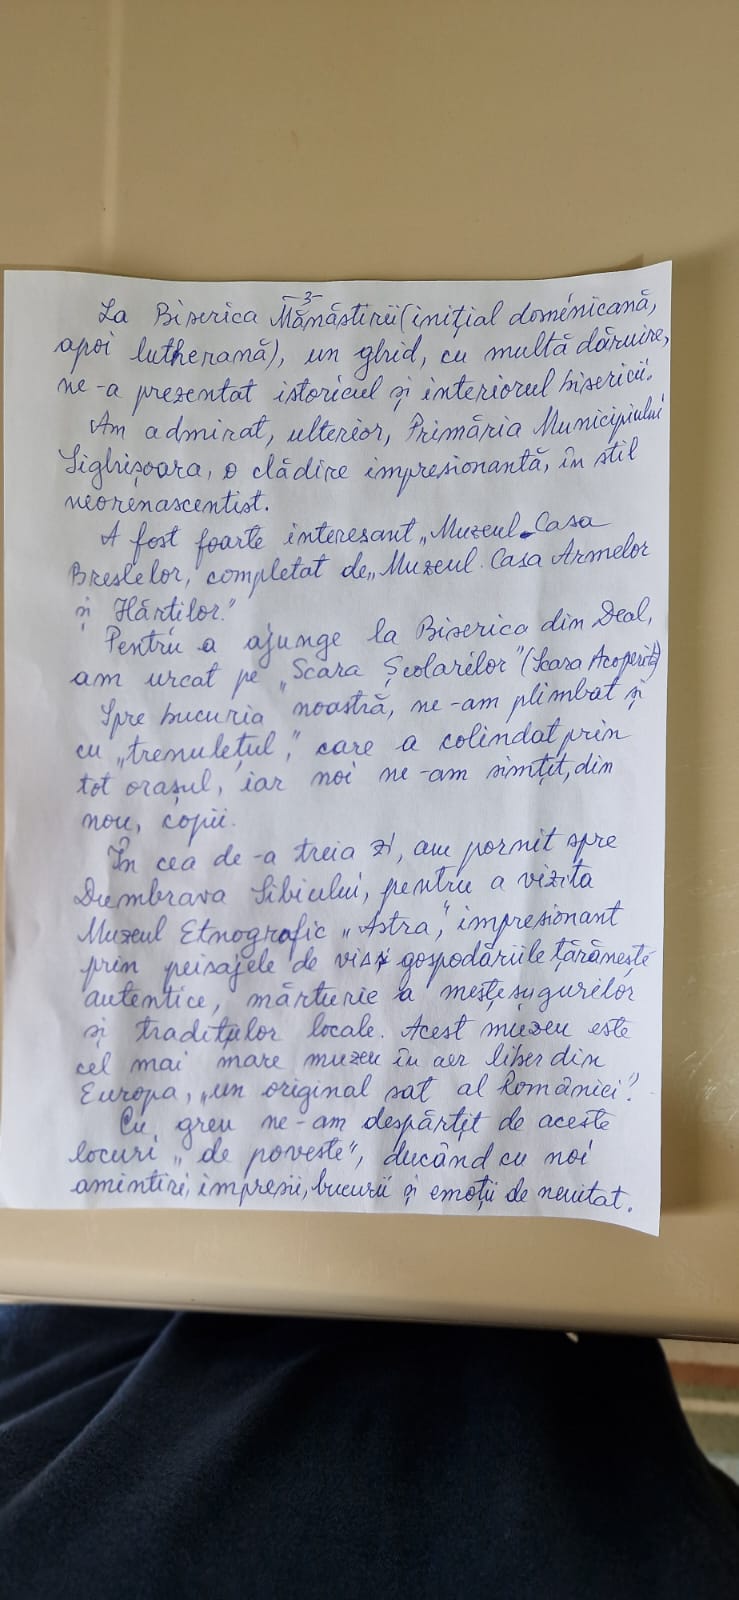 -3-
La Biserica Mănăstirii (inițial dominicană,
apoi lutherană), un ghid, cu multă dăruire,
ne-a prezentat istoricul și interiorul bisericii.
Am admirat, ulterior, Primăria Municipiului
Sighișoara, o clădire impresionantă, în stil
neorenascentist.
A fost foarte interesant „Muzeul-Casa
Breslelor, completat de „Muzeul Casa Armelor
și Hărților."
Pentru a ajunge la Biserica din Deal,
am urcat pe „Scara Școlarilor" (Scara Acoperită)
Spre bucuria noastră, ne-am plimbat și
cu „trenulețul," care a colindat prin
tot orașul, iar noi ne-am simțit, din
nou, copii.
În cea de-a treia zi, am pornit spre
Dumbrava Sibiului, pentru a vizita
Muzeul Etnografic „Astra," impresionant
prin peisajele de vis și gospodăriile țărănești
autentice, mărturie a meșteșugurilor
și tradițiilor locale. Acest muzeu este
cel mai mare muzeu în aer liber din
Europa, „un original sat al României".
Cu greu ne-am despărțit de aceste
locuri „de poveste", ducând cu noi
amintiri, impresii, bucurii și emoții de neuitat.